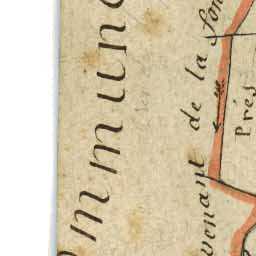 mmuno
venant de la fon
Prés